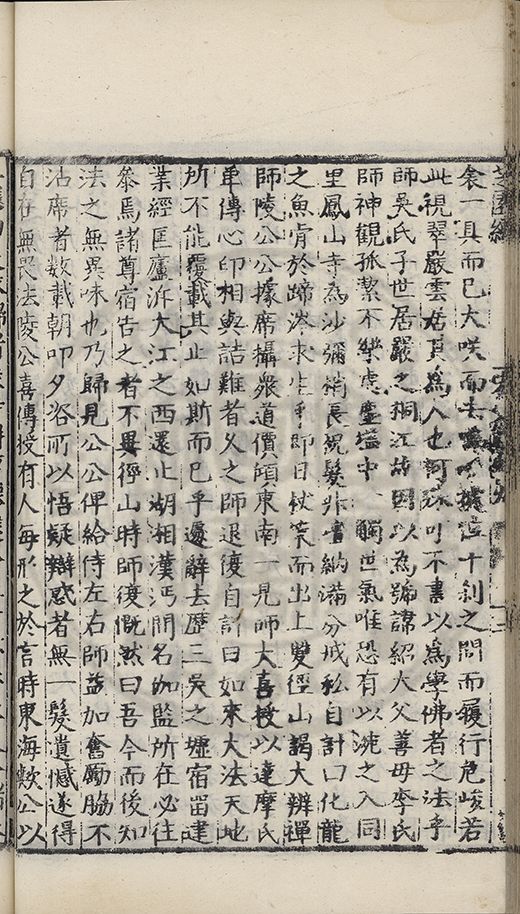 衾一具而已大咲而去
十剎之間而履行危峻若
此視翠巖雲居真為人也可不書以為學佛者之法乎
師吳氏子世居嚴之桐江故因以為號諱紹大父善母李氏
師神觀孤潔不樂處塵壒中一觸世氣唯恐有以浼之入同
里鳳山寺為沙彌稍長祝髮非書納滿分戒私自計曰化龍
之魚肯於蹄涔求生乎即日杖策而出上雙徑山謁大辨禪
師陵公公據席攝眾道價傾東南一見師大喜授以達摩氏
單傳心印相與詰難者久之師退復自計曰如來大法天地
所不能覆載其止如斯而已乎遽辭去歷三吳之墟宿留建
業經匡廬泝大江之西還止湖相漢沔間名伽監所在必往
叅焉諸尊宿告之者不異徑山時師復慨然曰吾今而後知
法之無異味也乃歸見公公俾給侍左右師益加奮勵脇不
沾席者数載朝叩夕咨所以悟疑辯惑者無一髮遺憾遂得
自在無畏法陵公喜傳授有人每形之於言時東海歟公以